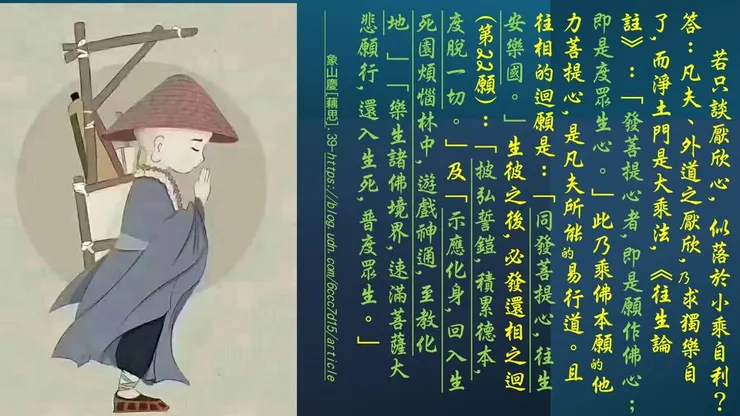 若只談厭欣心，似落於小乘自利？
答：凡夫、外道之厭欣，乃求獨樂自
了，而淨土門是大乘法，《往生論
註》：「發菩提心者，即是願作佛心；
即是度眾生心。」此乃乘佛本願的他
力菩提心，是凡夫所能的易行道。且
往相的迴願是：「同發菩提心，往生
安樂國。」生彼之後，必發還相之迴
(第22願)：「披弘誓鎧，積累德本，
度脫一切。」及「示應化身，回入生
死園煩惱林中，遊戲神通，至教化
地」「樂生諸佛境界，速滿菩薩大
悲願行，還入生死，普度眾生。」
象山慶[藕思].39-https://blog.udn.com/6ccc7d15/article